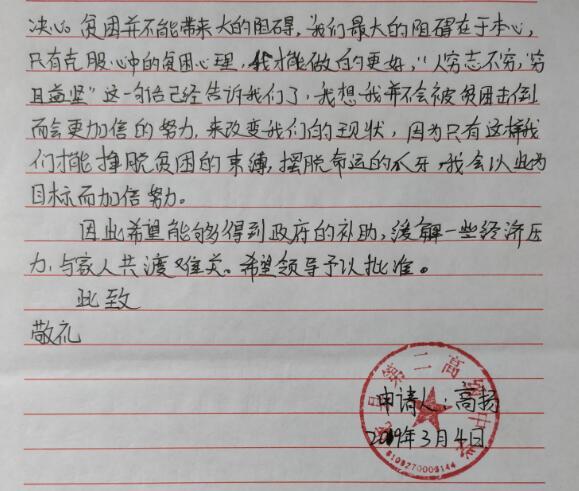 决心。贫困并不能带来大的阻碍，我们最大的阻碍在于本心，
只有克服心中的贫困心理，我才能做的更好，“人穷志不穷，穷
且益坚”这一句话已经告诉我们了，我想我并不会被贫困击倒
而会更加倍的努力，来改变我们的现状，因为只有这样我
们才能挣脱贫困的束缚，摆脱命运的爪牙，我会以此为
目标而加倍努力。
因此希望能够得到政府的补助，缓解一些经济压
力，与家人共渡难关。希望领导予以批准。
此致
敬礼
县第二高级中学
申请人：高扬
2019年3月4日